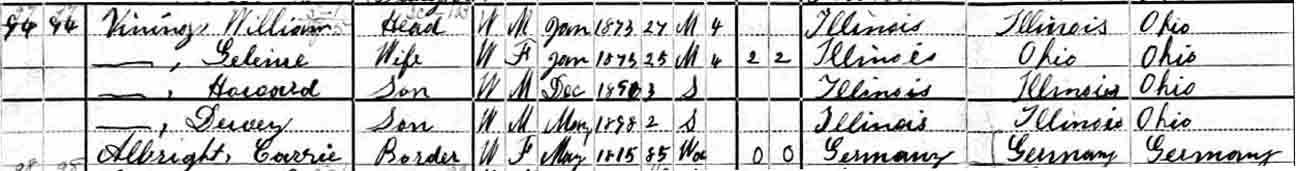 94 94 Vining, William Head W M Jan 1873 27 M 4 Illinois Illinois Ohio
—, Wife W F Jan 1875 25 M 4 2 2 Illinois Ohio Ohio
—, Howard Son W M Dec 3 S Illinois Illinois Ohio
—, Dewey Son W M May 1898 2 S Illinois Illinois Ohio
Albright, Carrie Border W F May 1815 85 Wd 0 0 Germany Germany Germany